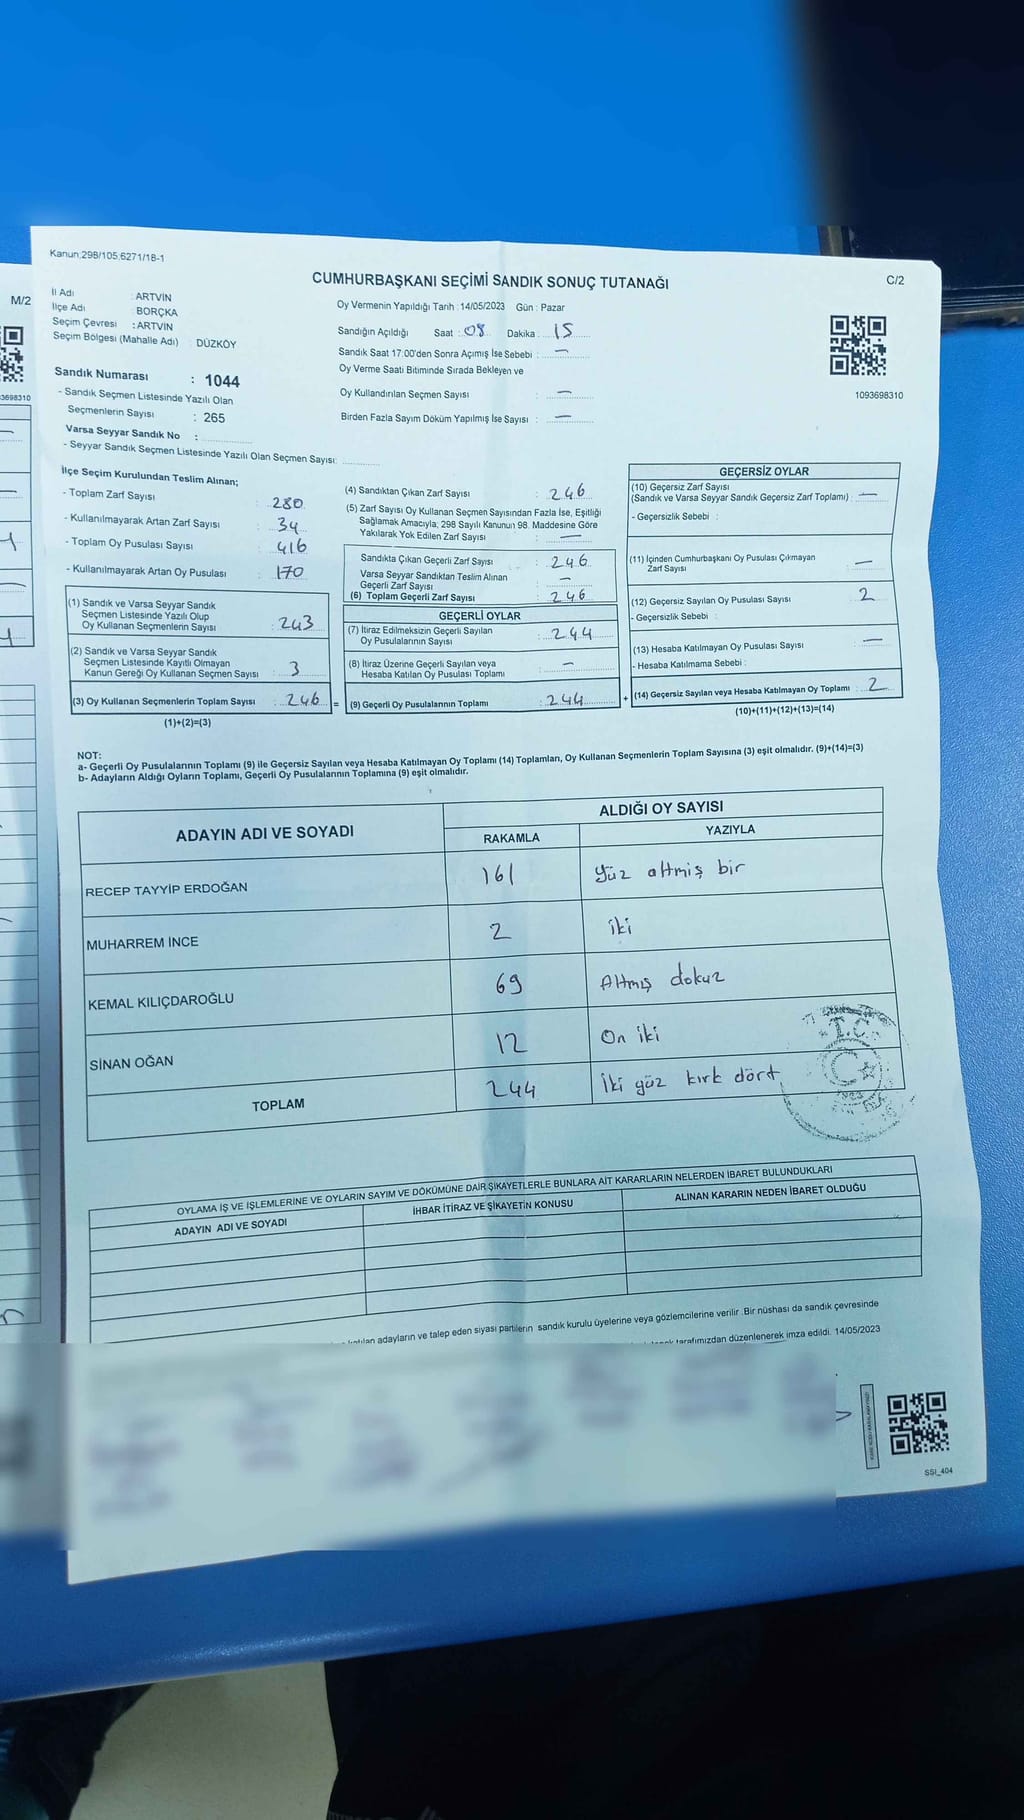 Kanun;298/105,6271/18-1
CUMHURBAŞKANI SEÇİMİ SANDIK SONUÇ TUTANAĞI
C/2
M/2
İl Adı : ARTVİN
İlçe Adı : BORÇKA
Seçim Çevresi : ARTVİN
Seçim Bölgesi (Mahalle Adı) : DÜZKÖY
Oy Vermenin Yapıldığı Tarih : 14/05/2023 Gün : Pazar
Sandığın Açıldığı Saat : 08 Dakika : 15
Sandık Saat 17:00'den Sonra Açımış İse Sebebi : —
Oy Verme Saati Bitiminde Sırada Bekleyen ve
Oy Kullandırılan Seçmen Sayısı : —
Birden Fazla Sayım Döküm Yapılmış İse Sayısı : —
1093698310
3698310
Sandık Numarası : 1044
- Sandık Seçmen Listesinde Yazılı Olan
Seçmenlerin Sayısı : 265
Varsa Seyyar Sandık No :
- Seyyar Sandık Seçmen Listesinde Yazılı Olan Seçmen Sayısı:
İlçe Seçim Kurulundan Teslim Alınan;
- Toplam Zarf Sayısı : 280
- Kullanılmayarak Artan Zarf Sayısı : 34
- Toplam Oy Pusulası Sayısı : 416
- Kullanılmayarak Artan Oy Pusulası : 170
(1) Sandık ve Varsa Seyyar Sandık
Seçmen Listesinde Yazılı Olup
Oy Kullanan Seçmenlerin Sayısı : 243
(2) Sandık ve Varsa Seyyar Sandık
Seçmen Listesinde Kayıtlı Olmayan
Kanun Gereği Oy Kullanan Seçmen Sayısı : 3
(3) Oy Kullanan Seçmenlerin Toplam Sayısı : 246 =
(1)+(2)=(3)
(4) Sandıktan Çıkan Zarf Sayısı : 246
(5) Zarf Sayısı Oy Kullanan Seçmen Sayısından Fazla İse, Eşitliği
Sağlamak Amacıyla; 298 Sayılı Kanunun 98. Maddesine Göre
Yakılarak Yok Edilen Zarf Sayısı : —
Sandıkta Çıkan Geçerli Zarf Sayısı : 246
Varsa Seyyar Sandıktan Teslim Alınan
Geçerli Zarf Sayısı : —
(6) Toplam Geçerli Zarf Sayısı : 246
GEÇERLİ OYLAR
(7) İtiraz Edilmeksizin Geçerli Sayılan
Oy Pusulalarının Sayısı : 244
(8) İtiraz Üzerine Geçerli Sayılan veya
Hesaba Katılan Oy Pusulası Toplamı : —
(9) Geçerli Oy Pusulalarının Toplamı : 244 +
GEÇERSİZ OYLAR
(10) Geçersiz Zarf Sayısı
(Sandık ve Varsa Seyyar Sandık Geçersiz Zarf Toplamı) : —
- Geçersizlik Sebebi :
(11) İçinden Cumhurbaşkanı Oy Pusulası Çıkmayan
Zarf Sayısı : —
(12) Geçersiz Sayılan Oy Pusulası Sayısı : 2
- Geçersizlik Sebebi :
(13) Hesaba Katılmayan Oy Pusulası Sayısı : —
- Hesaba Katılmama Sebebi :
(14) Geçersiz Sayılan veya Hesaba Katılmayan Oy Toplamı : 2
(10)+(11)+(12)+(13)=(14)
NOT:
a- Geçerli Oy Pusulalarının Toplamı (9) ile Geçersiz Sayılan veya Hesaba Katılmayan Oy Toplamı (14) Toplamları, Oy Kullanan Seçmenlerin Toplam Sayısına (3) eşit olmalıdır. (9)+(14)=(3)
b- Adayların Aldığı Oyların Toplamı, Geçerli Oy Pusulalarının Toplamına (9) eşit olmalıdır.
ADAYIN ADI VE SOYADI
ALDIĞI OY SAYISI
RAKAMLA YAZIYLA
RECEP TAYYİP ERDOĞAN 161 Yüz altmış bir
MUHARREM İNCE 2 iki
KEMAL KILIÇDAROĞLU 69 Altmış dokuz
SİNAN OĞAN 12 On iki
TOPLAM 244 İki yüz kırk dört
T.C.
OYLAMA İŞ VE İŞLEMLERİNE VE OYLARIN SAYIM VE DÖKÜMÜNE DAİR ŞİKAYETLERLE BUNLARA AİT KARARLARIN NELERDEN İBARET BULUNDUKLARI
ADAYIN ADI VE SOYADI İHBAR İTİRAZ VE ŞİKAYETİN KONUSU ALINAN KARARIN NEDEN İBARET OLDUĞU
adayların ve talep eden siyasi partilerin sandık kurulu üyelerine veya gözlemcilerine verilir. Bir nüshası da sandık çevresinde
tarafımızdan düzenlenerek imza edildi. 14/05/2023
SSI_404